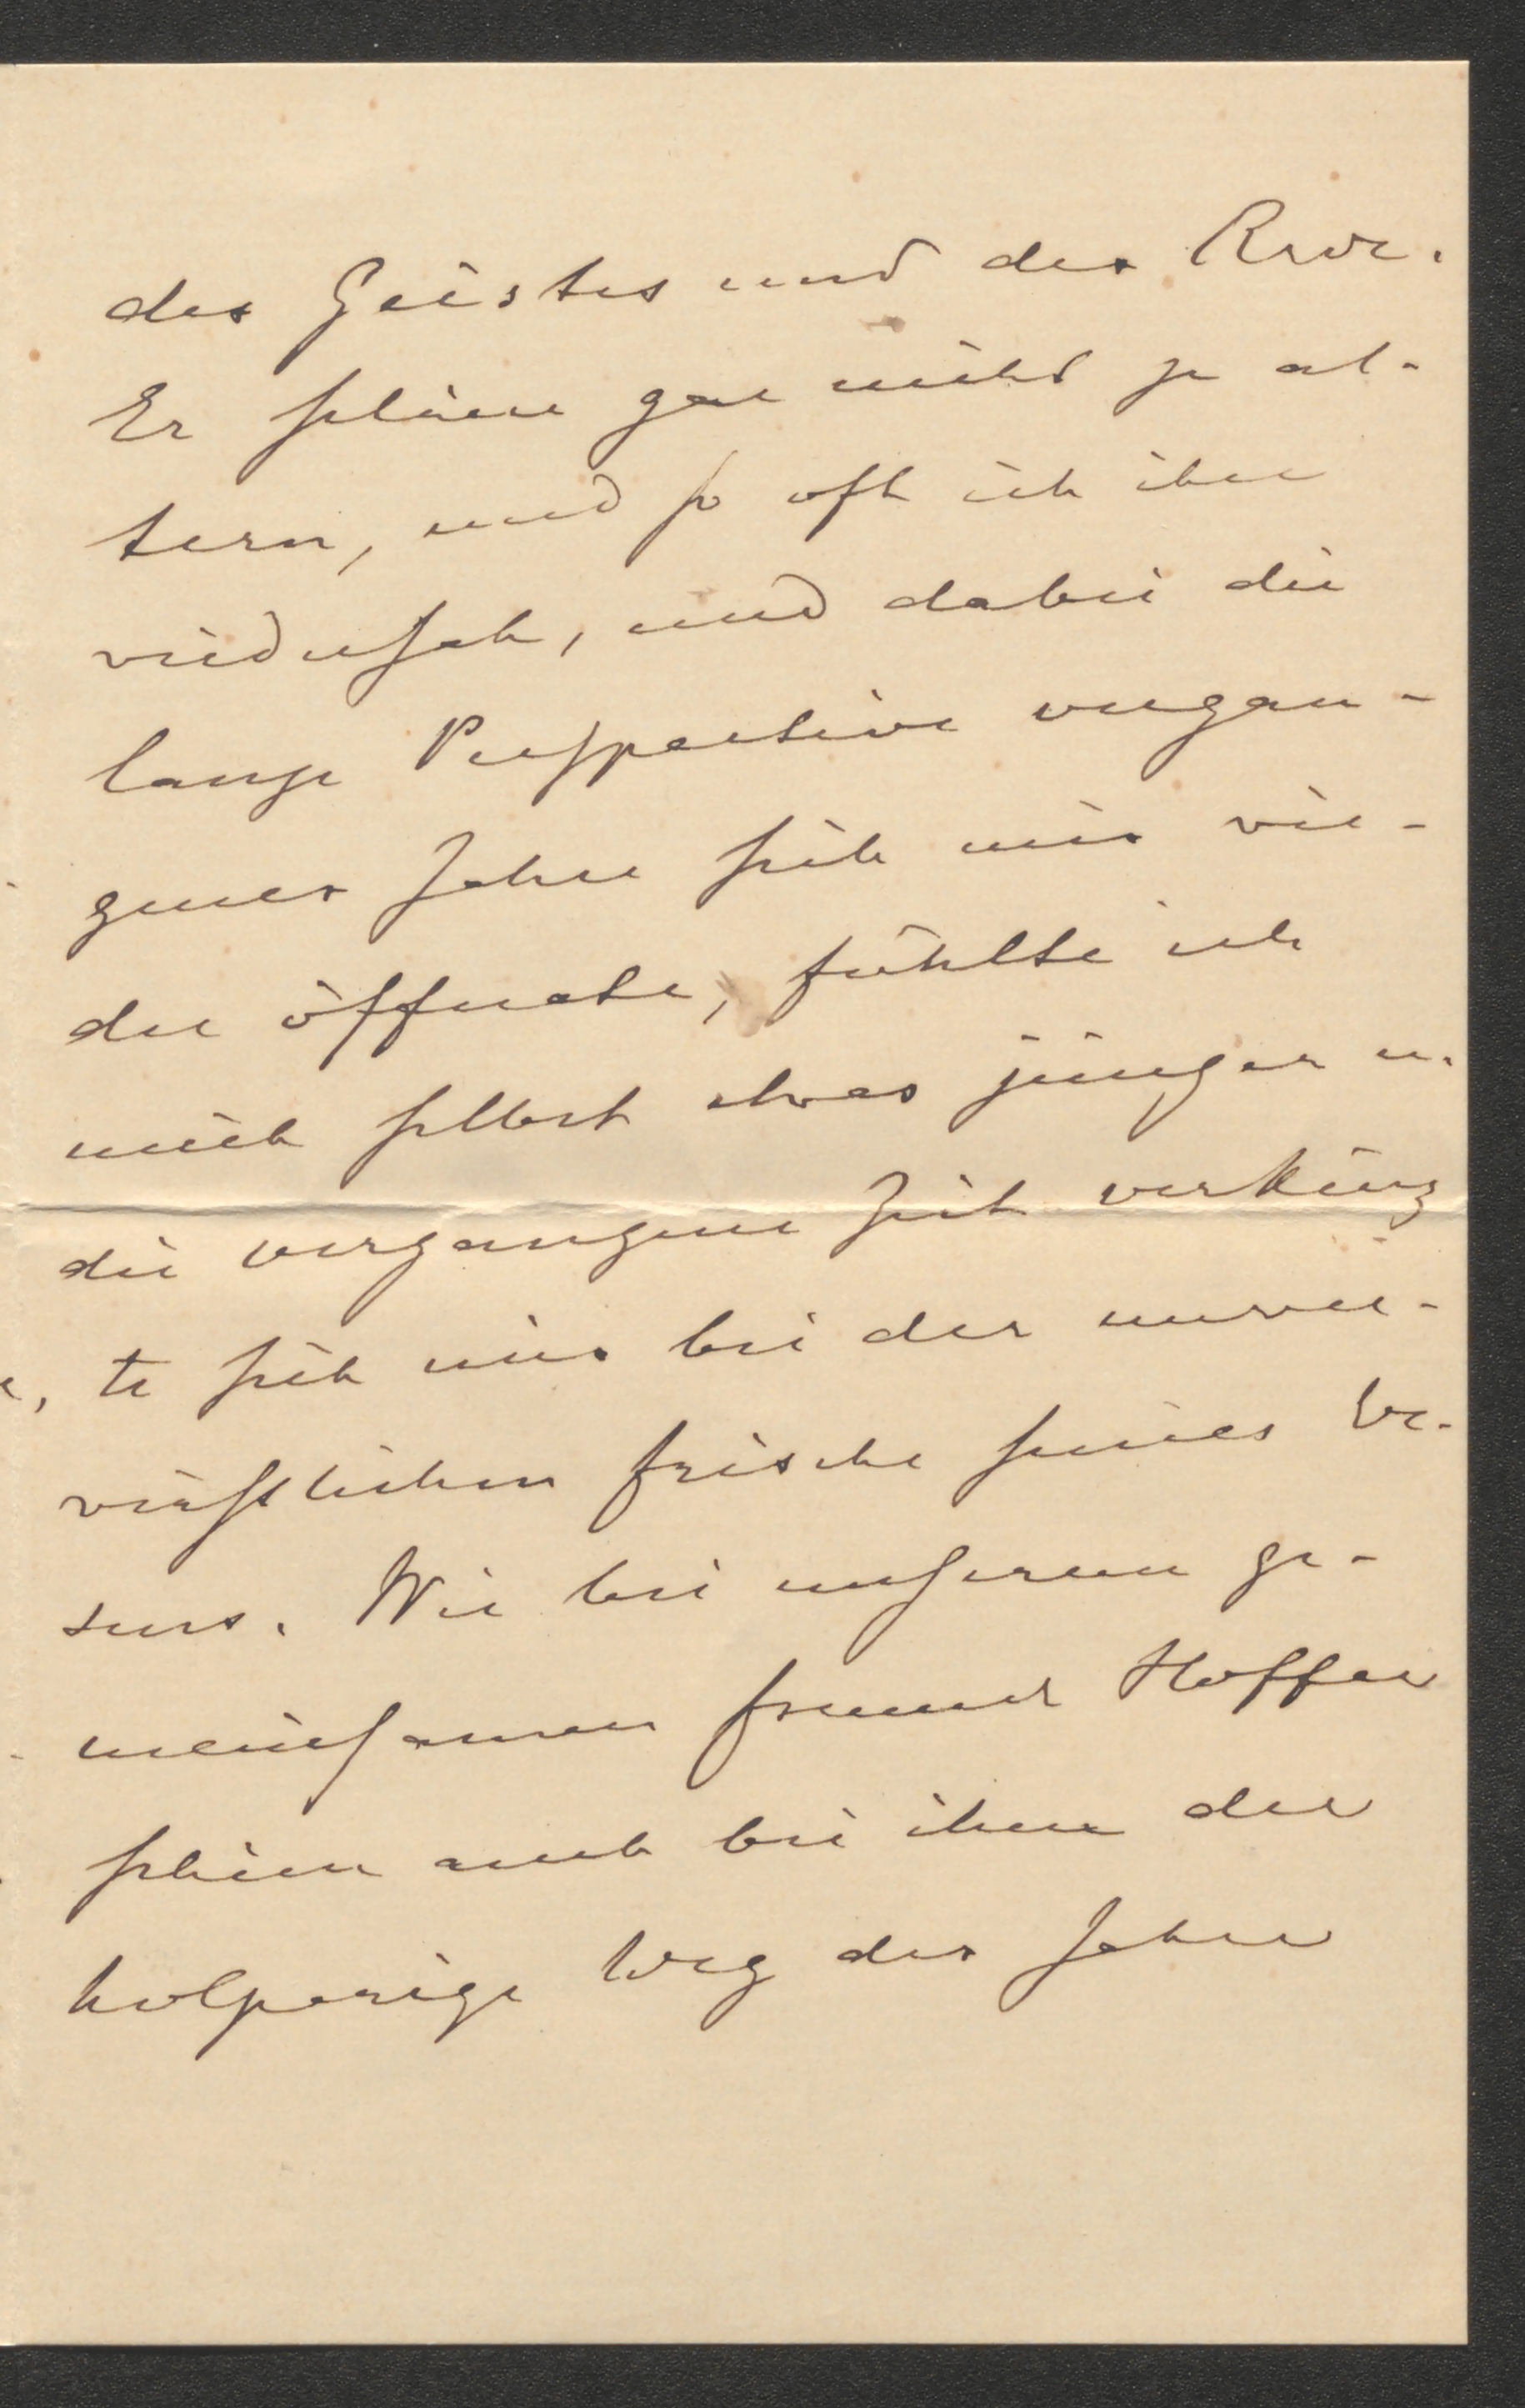 des Geistes und der Rede.
Er schien gar nicht zu al-
tern, und so oft ich ihn
wiedersah, und dabei die
lange Perspective vergan-
gener Jahre sich mir wie-
der öffnete, fühlte ich
mich selbst etwas jünger u.
die vergangene Zeit verkürz
te sich mir bei der unver-
wüstlichen Frische seines We-
sens. Wie bei unserem ge-
meinsamen Freund Hoffer
schien auch bei ihm der
holperige Weg der Jahre